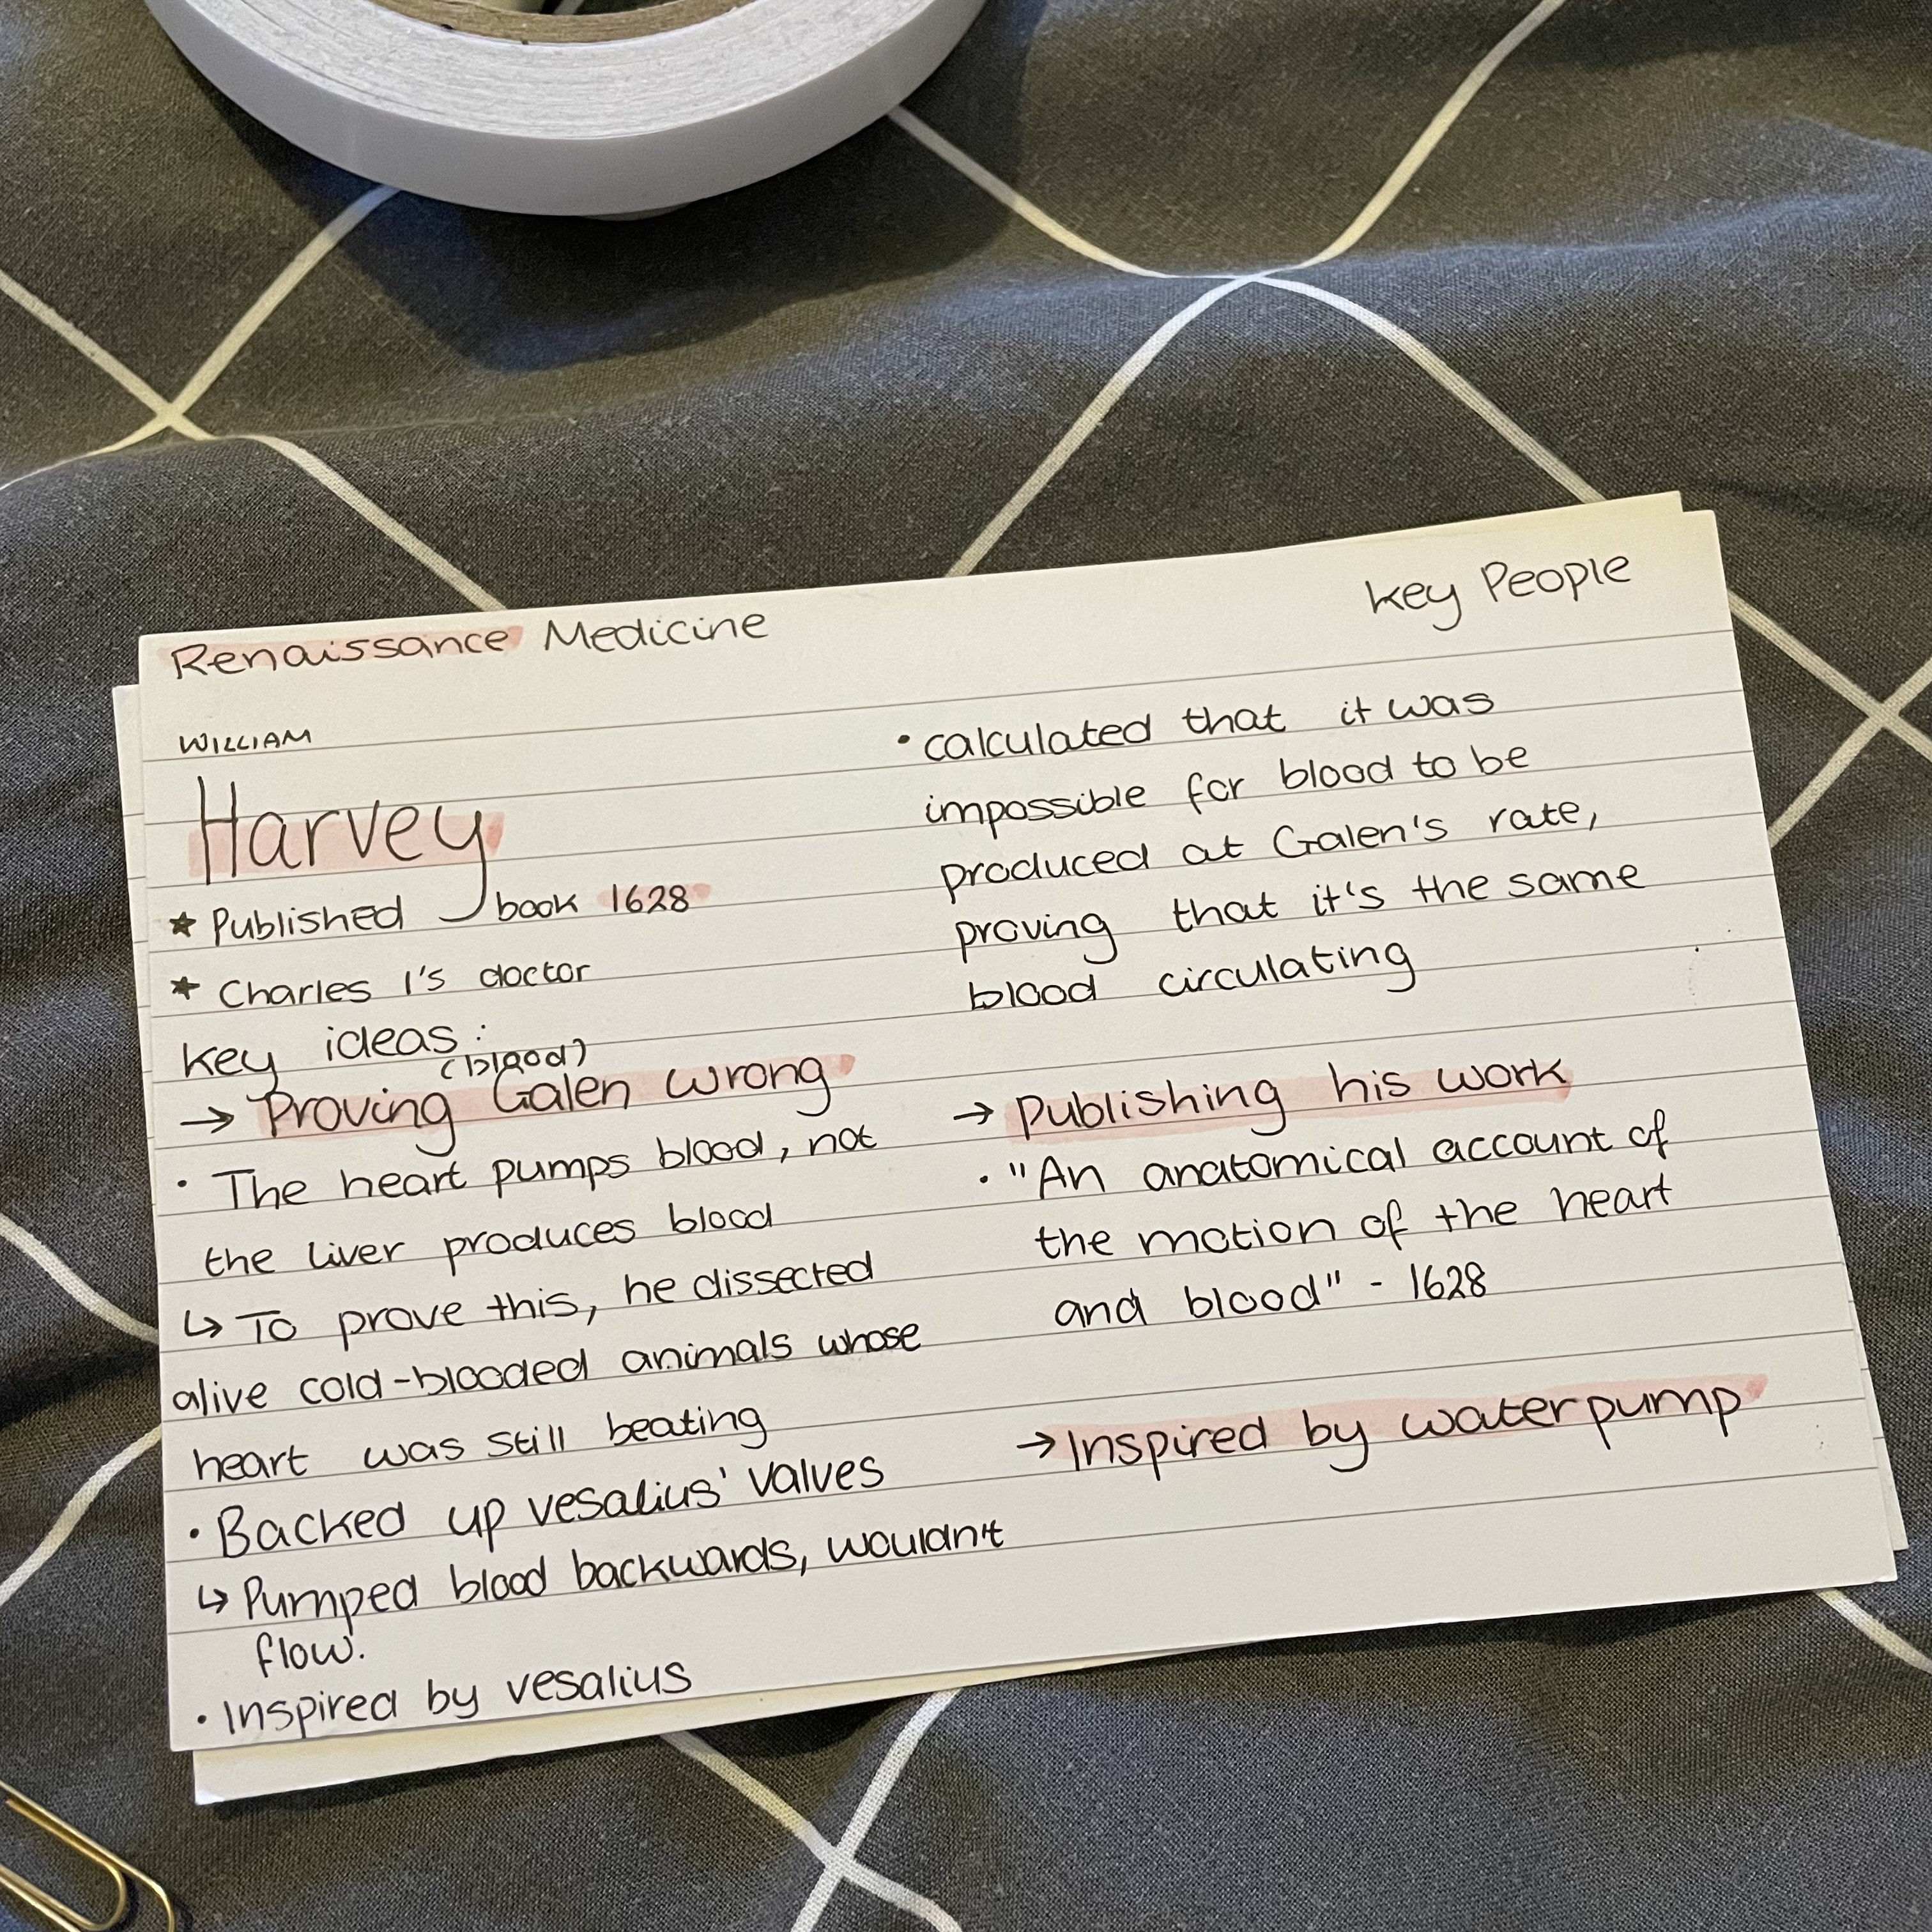 Renaissance Medicine
Key People
WILLIAM
Harvey
★ Published book 1628
★ Charles I's doctor
Key ideas:
(blood)
→ Proving Galen wrong
• The heart pumps blood, not
the liver produces blood
↳ To prove this, he dissected
alive cold-blooded animals whose
heart was still beating
• Backed up vesalius' valves
↳ Pumped blood backwards, wouldn't
flow.
• Inspired by vesalius
• calculated that it was
impossible for blood to be
produced at Galen's rate,
proving that it's the same
blood circulating
→ Publishing his work
• "An anatomical account of
the motion of the heart
and blood" - 1628
→ Inspired by waterpump